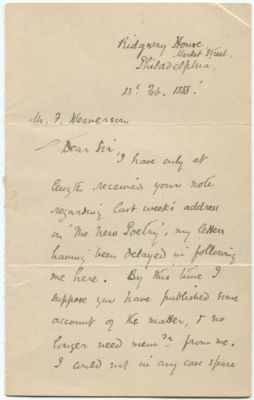 Ridgway House,
Market Street.
Philadelphia,
13th Feb. 1888.
Mr. F.
Dear Sir
I have only at
length received your note
regarding last week's address
on "The New Poetry", my letters
having been delayed in following
me here. By this time I
suppose you have published some
account of the matter, & no
longer need mem from me.
I could not in any case spare